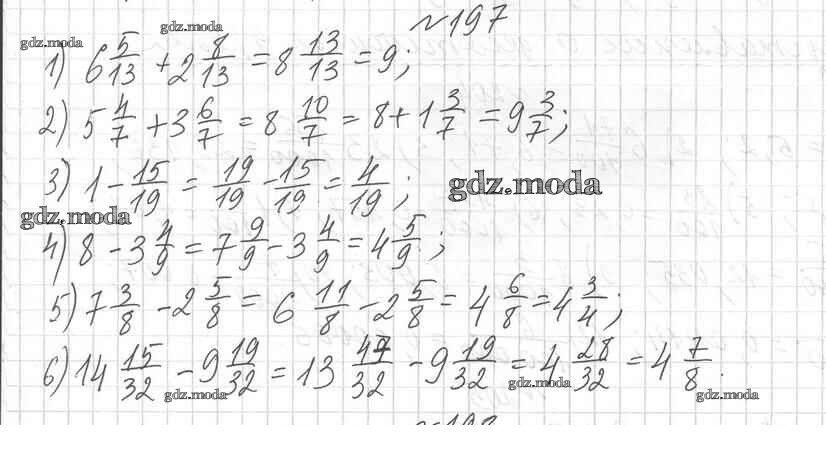 №197
gdz.moda
gdz.moda
1) 6 5/13 + 2 8/13 = 8 13/13 = 9;
2) 5 4/7 + 3 6/7 = 8 10/7 = 8 + 1 3/7 = 9 3/7;
3) 1 - 15/19 = 19/19 - 15/19 = 4/19;
gdz.moda
gdz.moda
4) 8 - 3 4/9 = 7 9/9 - 3 4/9 = 4 5/9;
5) 7 3/8 - 2 5/8 = 6 11/8 - 2 5/8 = 4 6/8 = 4 3/4;
6) 14 15/32 - 9 19/32 = 13 47/32 - 9 19/32 = 4 28/32 = 4 7/8.
gdz.moda
gdz.moda
gdz.moda